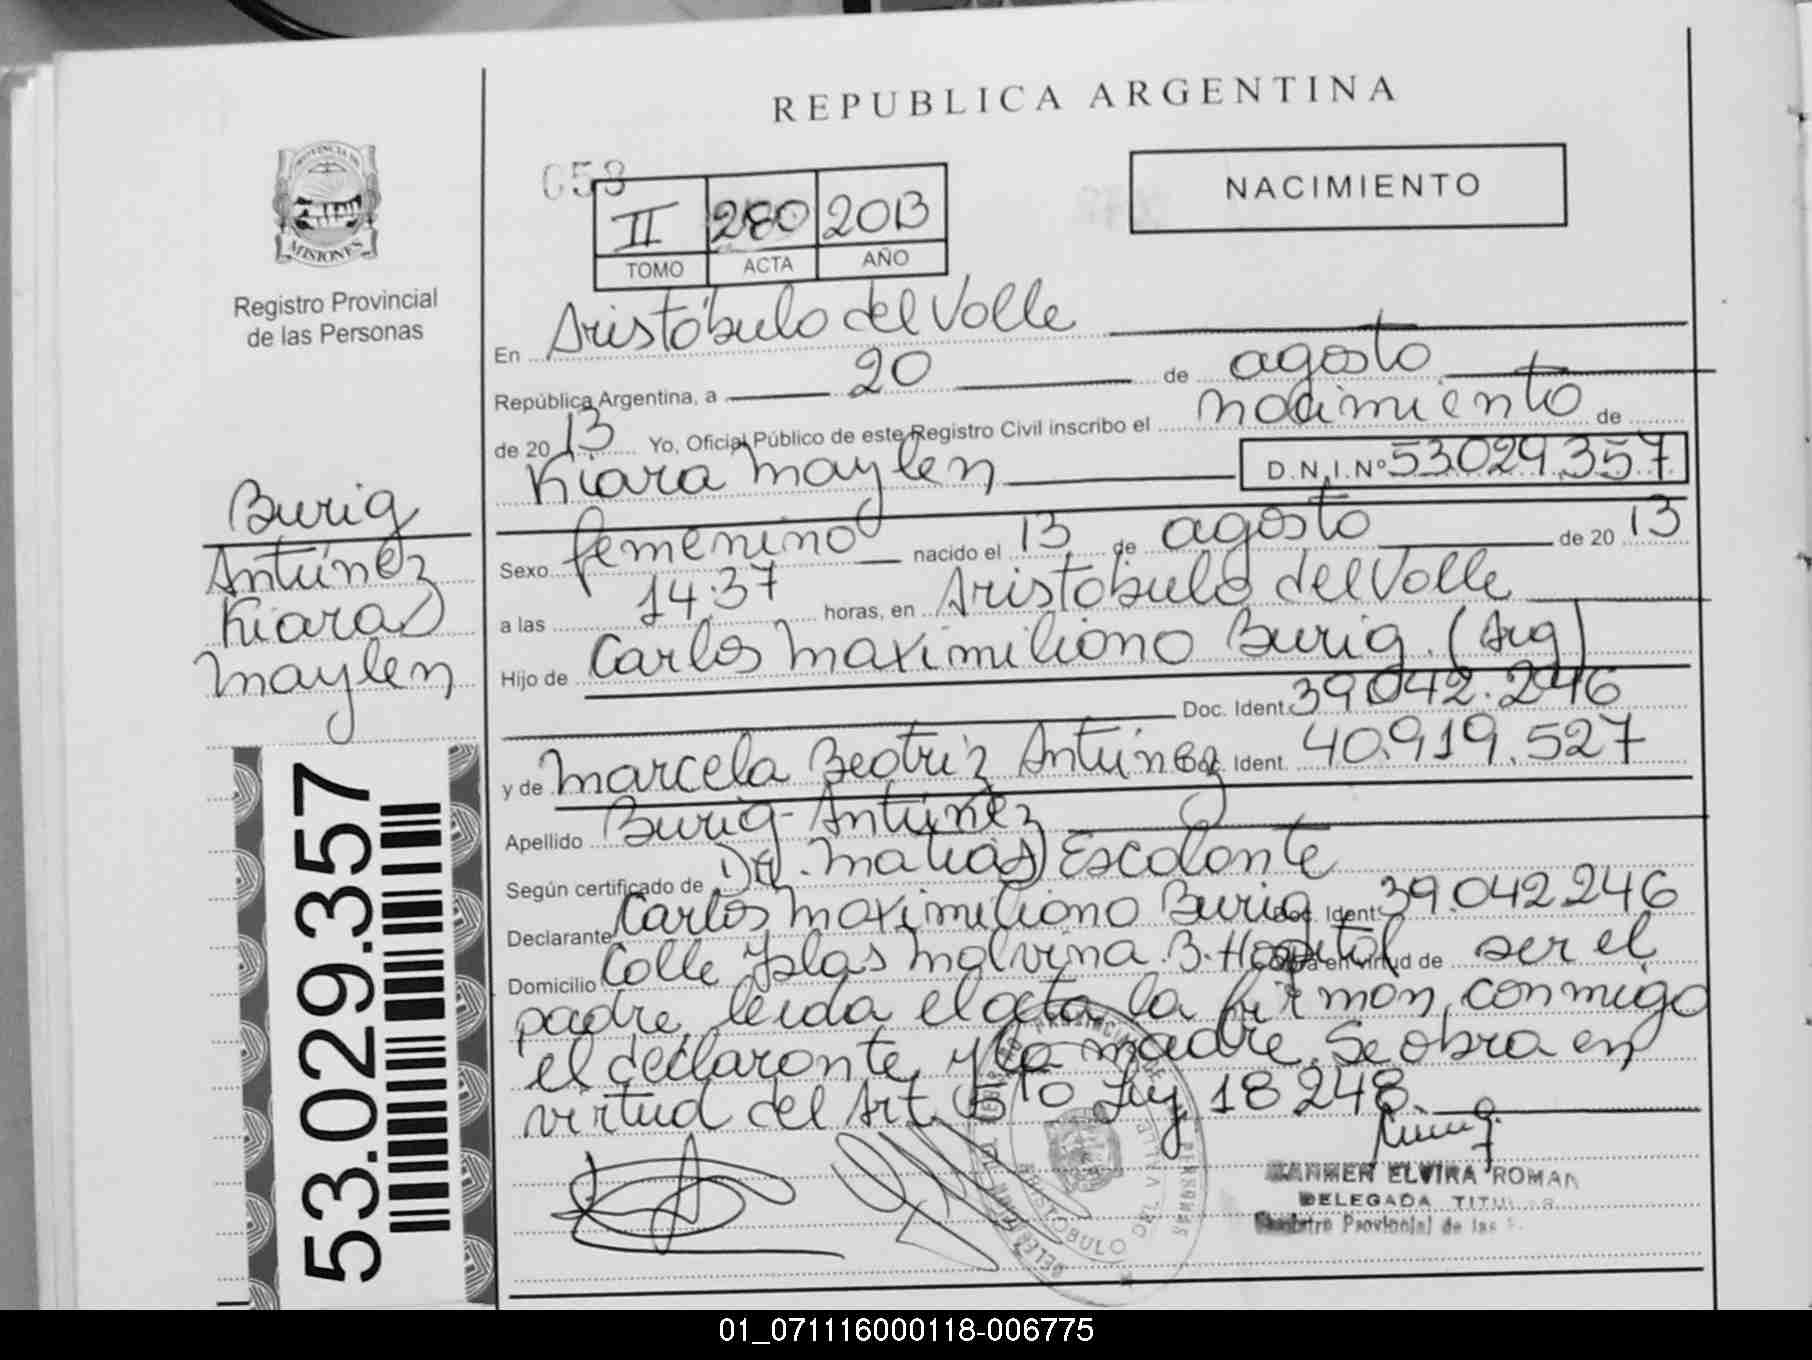 REPUBLICA ARGENTINA
PROVINCIA DE
MISIONES
Registro Provincial
de las Personas
058
II 280 2013
TOMO ACTA AÑO
NACIMIENTO
En Aristóbulo del Valle
República Argentina, a 20 de agosto
de 20 13 Yo, Oficial Público de este Registro Civil inscribo el nacimiento de
Kiara Maylen D.N.I.Nº 53.029.357
Sexo femenino nacido el 13 de agosto de 20 13
a las 14:37 horas, en Aristóbulo del Valle
Hijo de Carlos Maximiliano Burig (Arg)
Doc. Ident. 39.042.246
y de Marcela Beatriz Antúnez Doc. Ident. 40.919.527
Apellido Burig-Antúnez
Según certificado de Dr. Matías Escalante
Declarante Carlos Maximiliano Burig Doc. Ident. 39.042.246
Domicilio Calle Yslas Malvina. B. Hospital Obra en virtud de ser el
padre, leida el acta la firman conmigo
el declarante y la madre. Se obra en
virtud del Art. 5to Ley 18248.
Burig
Antúnez
Kiara
Maylen
53.029.357
ARISTOBULO DEL VALLE
CARMEN ELVIRA ROMAN
DELEGADA TITULAR
Registro Provincial de las
01_071116000118-006775